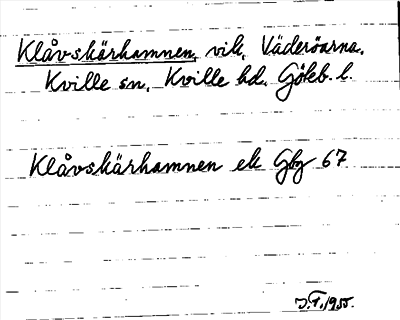 Klåvskärhamnen, vik, Väderöarna,
Kville sn, Kville hd, Göteb. l.
Klåvskärhamnen ek Gbg 67
J.F. 1955.